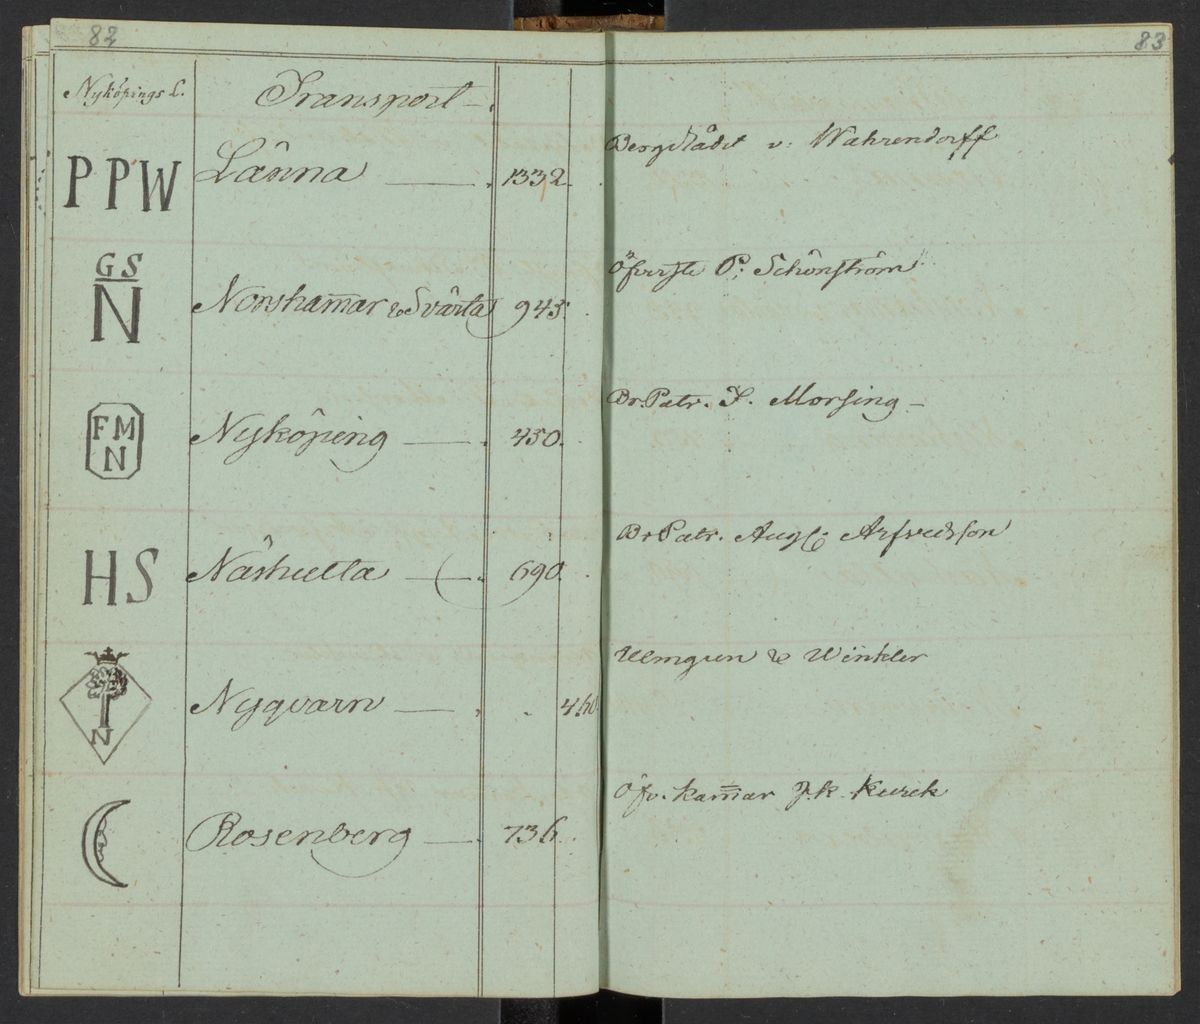 82
83
Nyköpings L.
Transport
PPW
Länna 1332
Bergsrådet v. Wahrendorff
GS
N
Norshamar & Svärta 943
Öfverste P. Schönström
FM
N
Nyköping 450
Br. Patr. F. Morsing
HS
Näshulta 690
Br Patr. Aug. Arfvedson
N
Nyqvarn 460
Ulmgren & Winkler
Rosenberg 736
Öfv. kamar J. k. Kurck